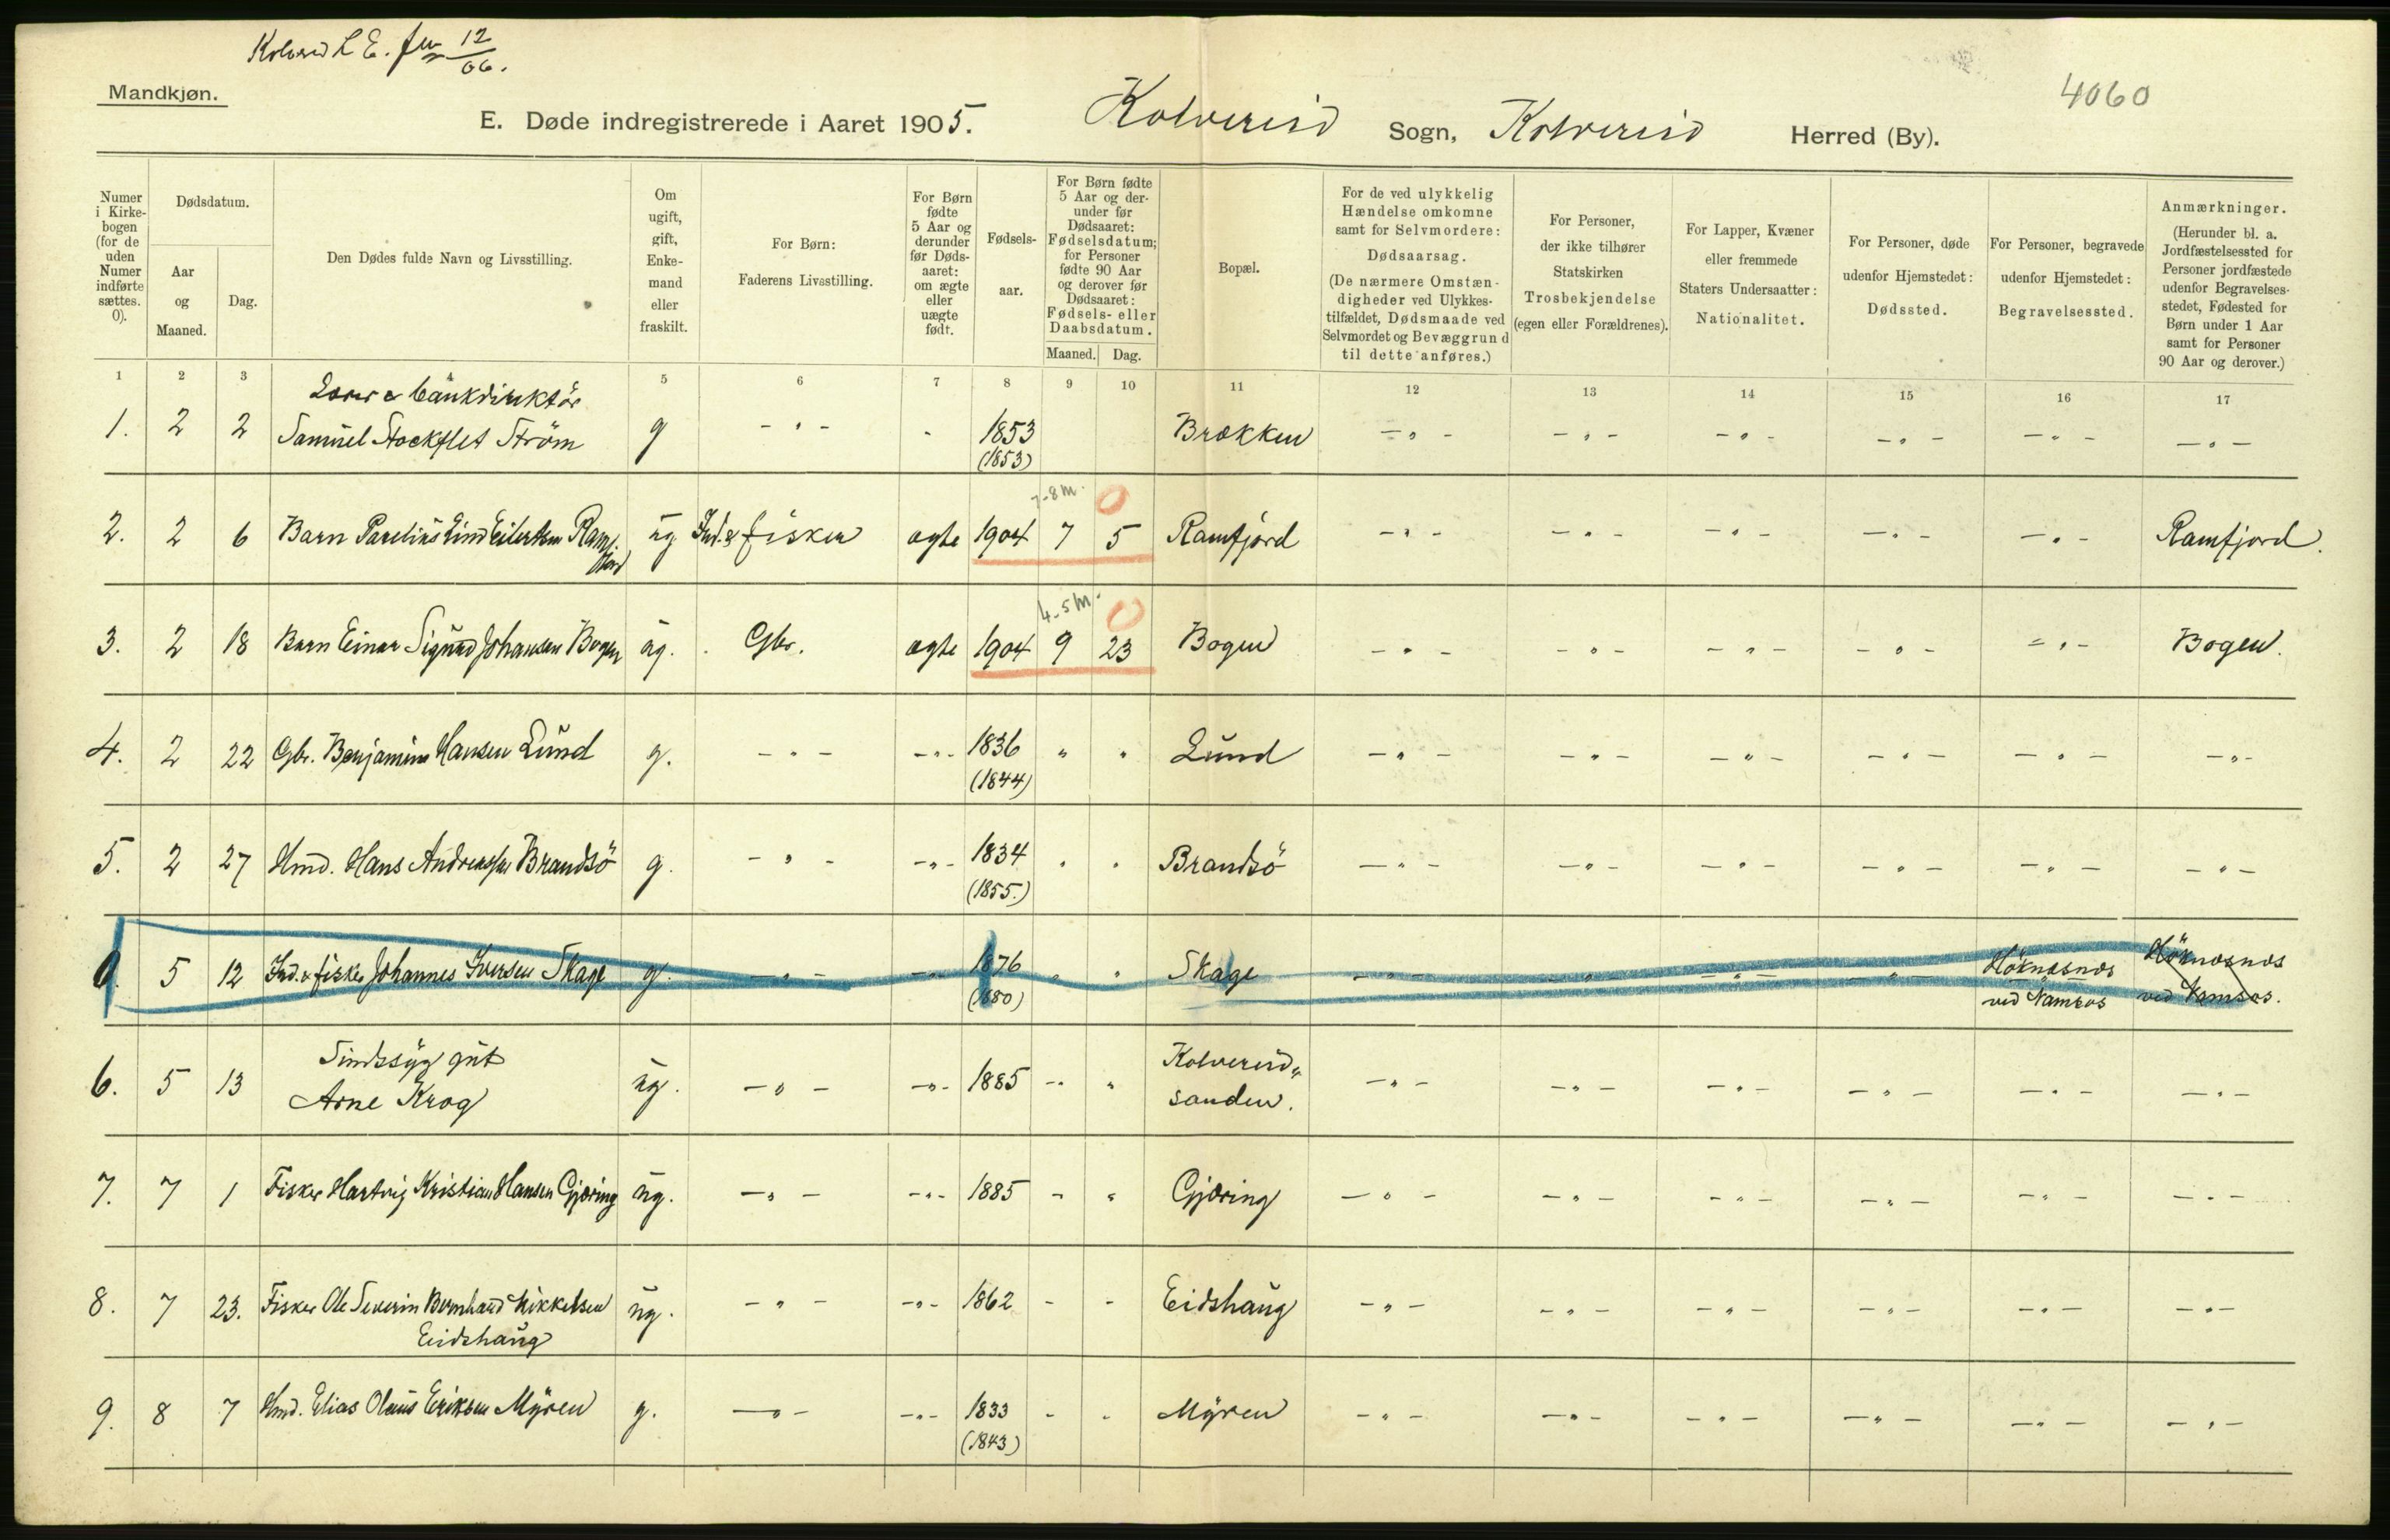 12
06.
Mandkjøn.
4060
E. Døde indregistrerede i Aaret 1905. Kolvereid Sogn, Kolvereid Herred (By).
Numer i Kirkebogen (for de uden Numer indførte sættes. 0).
Dødsdatum.
Aar og Maaned.
Dag.
Den Dødes fulde Navn og Livsstilling.
Om ugift, gift, Enkemand eller fraskilt.
For Børn:
Faderens Livsstilling.
For Børn fødte 5 Aar og derunder før Dødsaaret: om ægte eller uægte født.
Fødselsaar.
For Børn fødte 5 Aar og derunder før Dødsaaret: Fødselsdatum; for Personer fødte 90 Aar og derover før Dødsaaret: Fødsels- eller Daabsdatum.
Maaned. Dag.
Bopæl.
For de ved ulykkelig Hændelse omkomne samt for Selvmordere:
Dødsaarsag.
(De nærmere Omstændigheder ved Ulykkestilfældet, Dødsmaade ved Selvmordet og Bevæggrund til dette anføres.)
For Personer, der ikke tilhører Statskirken
Trosbekjendelse
(egen eller Forældrenes).
For Lapper, Kvæner eller fremmede Staters Undersaatter:
Nationalitet.
For Personer, døde udenfor Hjemstedet:
Dødssted.
For Personer, begravede udenfor Hjemstedet:
Begravelsessted.
Anmærkninger.
(Herunder bl. a. Jordfæstelsessted for Personer jordfæstede udenfor Begravelsesstedet, Fødested for Børn under 1 Aar samt for Personer 90 Aar og derover.)
1 2 3 4 5 6 7 8 9 10 11 12 13 14 15 16 17
bankdirektör
1. 2 2 Samuel Stockflet Ström g - " - - 1853 Brækken - " - - " - - " - - " - - " - - " -
(1853)
7-8 m. 0
2. 2 6 Barn Parelius Eind Eilertsen Ramfjord ug Ind. & fisker ægte 1904 7 5 Ramfjord - " - - " - - " - - " - - " - Ramfjord.
4-5 m. 0
3. 2 18 Barn Einar Sigurd Johansen Bogen ug. Gbr. ægte 1904 9 23 Bogen - " - - " - - " - - " - - " - Bogen.
4. 2 22 Gbr. Benjamin Hansen Lund g. - " - - " - 1836 " " Lund - " - - " - - " - - " - - " - - " -
(1844)
5. 2 27 Hmd. Hans Andreassen Brandsö g. - " - - " - 1834 " " Brandsö - " - - " - - " - - " - - " - - " -
(1855.)
6. 5 12 Ind. & fisker Johannes Iversen Skage g. - " - - " - 1876 " " Skage - " - - " - - " - - " - Höknæsnes Höknæsnes
(1880) ved Namsos ved Namsos.
Sindssyg gut Kolvereid"
6. 5 13 Arne Krog ug. - " - - " - 1885 - " " sanden. - " - - " - - " - - " - - " - - " -
7. 7 1 Fisker Hartvig Kristian Hansen Gjæring ug. - " - - " - 1885 - " Gjæring - " - - " - - " - - " - - " - - " -
8. 7 23. Fisker Ole Severin Bernhard Mikkelsen ug. - " - - " - 1862 - - Eidshaug - " - - " - - " - - " - - " - - " -
Eidshaug
9. 8 7 Hmd. Elias Olaus Eriksen Myren g. - " - - " - 1833 - - Myren - " - - " - - " - - " - - " - - " -
(1843)